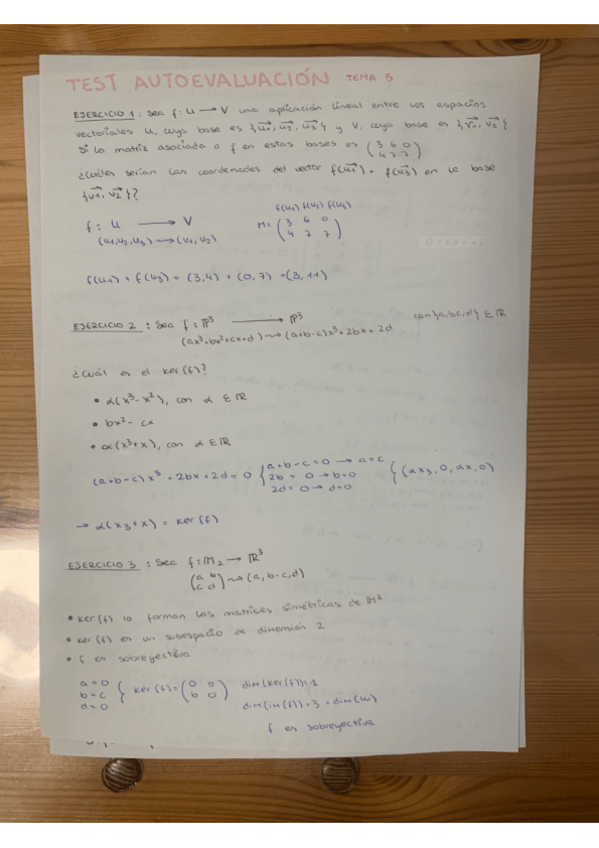 TEST AUTOEVALUACIÓN TEMA 5
EJERCICIO 1: Sea f: U → V una aplicación lineal entre los espacios
vectoriales U, cuya base es {u1, u2, u3} y V, cuya base es {v1, v2}
Si la matriz asociada a f en estas bases es (3 6 0
4 7 7)
¿Cuáles serían las coordenadas del vector f(u1) + f(u3) en la base
{v1, v2}?
f(u1) f(u2) f(u3)
f: U → V M= (3 6 0
(u1,u2,u3) ⇝ (v1, v2) 4 7 7)
f(u1) + f(u3) = (3,4) + (0,7) = (3,11)
EJERCICIO 2 : Sea f: P³ → P³ con {a,b,c,d} ∈ ℝ
(ax³+bx²+cx+d) ⇝ (a+b-c)x³ + 2bx + 2d
¿Cuál es el Ker(f)?
• α(x³-x²), con α ∈ ℝ
• bx² - cx
• α(x³+x), con α ∈ ℝ
(a+b-c)x³ + 2bx + 2d = 0 { a+b-c=0 → a=c
2b = 0 → b=0 { (ax3, 0, ax, 0)
2d = 0 → d=0
→ α(x3+x) = Ker(f)
EJERCICIO 3 : Sea f: M2 → ℝ³
(a b
c d) ⇝ (a, b-c, d)
• Ker(f) lo forman las matrices simétricas de M²
• Ker(f) es un subespacio de dimensión 2
• f es sobreyectiva
a=0
b=c { Ker(f) = (0 b
b 0) dim(Ker(f))=1
d=0 dim(Im(f))=3 = dim(W)
f es sobreyectiva